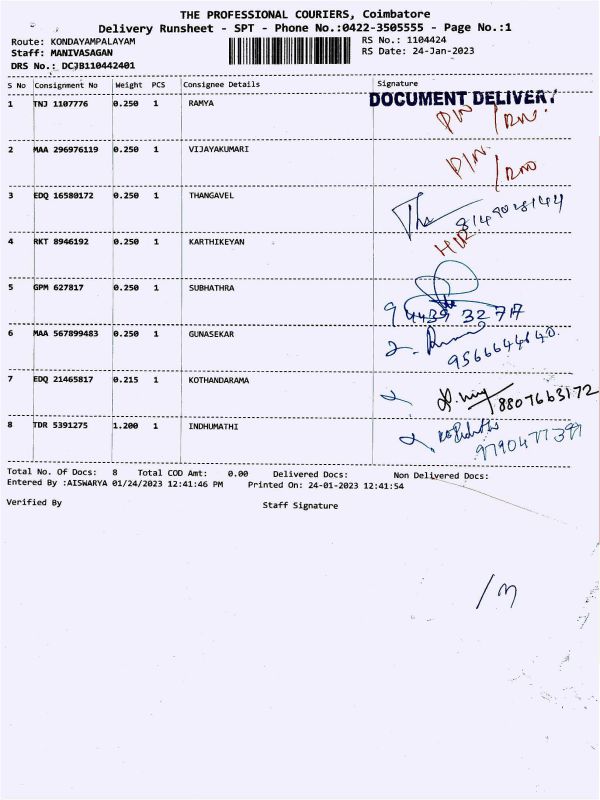 THE PROFESSIONAL COURIERS, Coimbatore
Delivery Runsheet - SPT - Phone No.:0422-3505555 - Page No.:1
Route: KONDAYAMPALAYAM RS No.: 1104424
Staff: MANIVASAGAN RS Date: 24-Jan-2023
DRS No.: DCJB110442401
S No Consignment No Weight PCS Consignee Details Signature
DOCUMENT DELIVERY
1 TNJ 1107776 0.250 1 RAMYA
2 MAA 296976119 0.250 1 VIJAYAKUMARI
3 EDQ 16580172 0.250 1 THANGAVEL
4 RKT 8946192 0.250 1 KARTHIKEYAN
5 GPM 627817 0.250 1 SUBHATHRA
94439 32717
6 MAA 567899483 0.250 1 GUNASEKAR
9566644640
7 EDQ 21465817 0.215 1 KOTHANDARAMA
8807663172
8 TDR 5391275 1.200 1 INDHUMATHI
9790477399
Total No. Of Docs: 8 Total COD Amt: 0.00 Delivered Docs: Non Delivered Docs:
Entered By :AISWARYA 01/24/2023 12:41:46 PM Printed On: 24-01-2023 12:41:54
Verified By Staff Signature